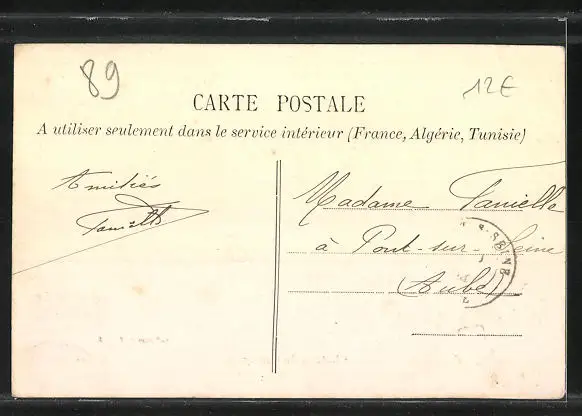 89
12€
CARTE POSTALE
A utiliser seulement dans le service intérieur (France, Algérie, Tunisie)
Amitiés
Madame Fanielle
à Pont-sur-Seine
(Aube)
R-SEINE